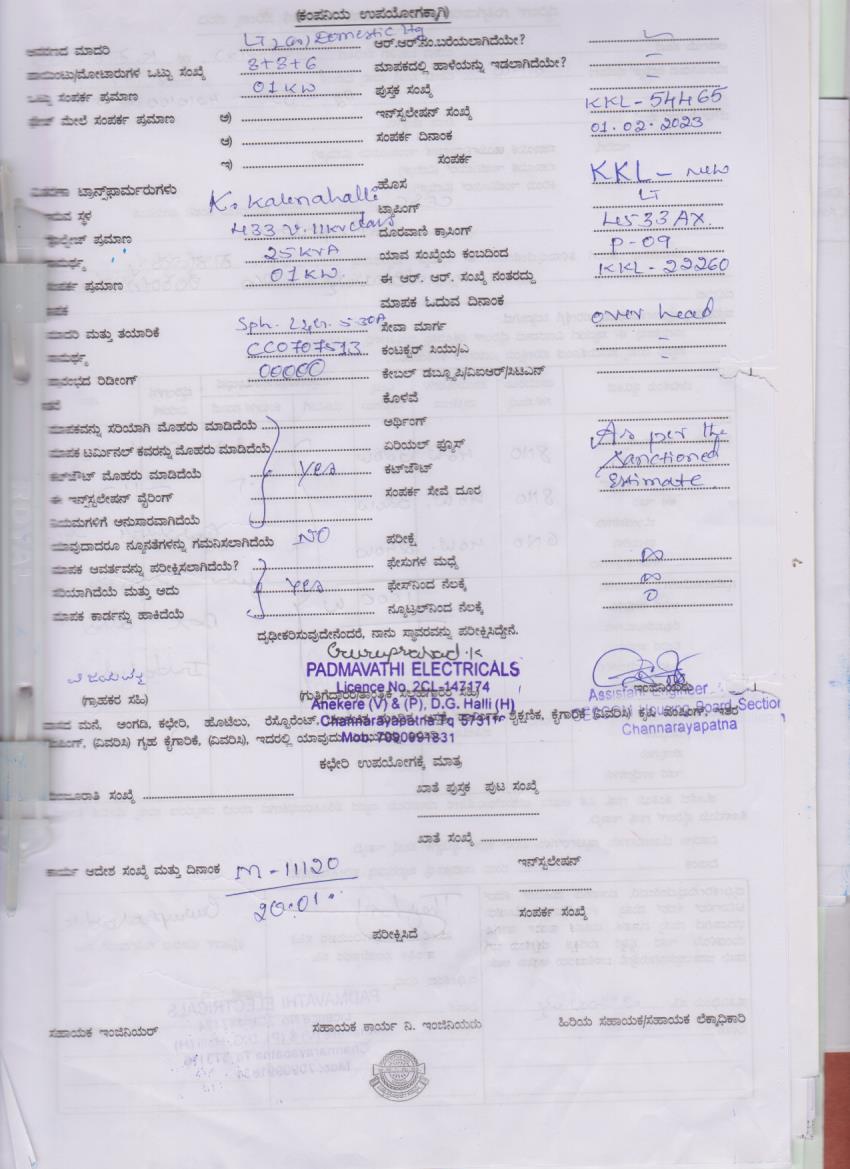 (ಕಂಪನಿಯ ಉಪಯೋಗಕ್ಕಾಗಿ)
ಮಾದರಿ LT 2(a) Domestic Ltg ಆರ್.ಆರ್.ನಂ.ಬರೆಯಲಾಗಿದೆಯೇ?
ಪಾಯಿಂಟು/ಮೋಟಾರುಗಳ ಒಟ್ಟು ಸಂಖ್ಯೆ 3+3+6 ಮಾಪಕದಲ್ಲಿ ಹಾಳೆಯನ್ನು ಇಡಲಾಗಿದೆಯೇ? –
ಒಟ್ಟು ಸಂಪರ್ಕ ಪ್ರಮಾಣ 01 KW ಪುಸ್ತಕ ಸಂಖ್ಯೆ –
ಮೇಲೆ ಸಂಪರ್ಕ ಪ್ರಮಾಣ ಅ) ಇನ್‌ಸ್ಟಲೇಷನ್ ಸಂಖ್ಯೆ KKL-54465
ಆ) ಸಂಪರ್ಕ ದಿನಾಂಕ 01.02.2023
ಇ) ಸಂಪರ್ಕ
ಟ್ರಾನ್ಸ್‌ಫಾರ್ಮರುಗಳು ಹೊಸ KKL - New
ಸ್ಥಳ K. Kalenahalli ಟ್ಯಾಪಿಂಗ್ LT
ಪ್ರಮಾಣ 433 V. 11kv class ದೂರವಾಣಿ ಕ್ರಾಸಿಂಗ್ 4533AX.
25 KVA ಯಾವ ಸಂಖ್ಯೆಯ ಕಂಬದಿಂದ P-09
ಪ್ರಮಾಣ 01 KW. ಈ ಆರ್. ಆರ್. ಸಂಖ್ಯೆ ನಂತರದ್ದು KKL-22260
ಮಾಪಕ ಓದುವ ದಿನಾಂಕ
ಮಾದರಿ ಮತ್ತು ತಯಾರಿಕೆ Sph. 5-30A ಸೇವಾ ಮಾರ್ಗ over head
CC0707513 ಕಂಟಕ್ಟರ್ ಸಿಯು/ಎ –
ರಿಡೀಂಗ್ 00000 ಕೇಬಲ್ ಡಬ್ಲ್ಯೂಪಿ/ವಿಐಆರ್/ಸಿಟಿಎನ್ –
ಕೊಳವೆ
ಮಾಪಕವನ್ನು ಸರಿಯಾಗಿ ಮೊಹರು ಮಾಡಿದೆಯೆ ಅರ್ಥಿಂಗ್ As per the
ಮಾಪಕ ಟರ್ಮಿನಲ್ ಕವರನ್ನು ಮೊಹರು ಮಾಡಿದೆಯೆ ಏರಿಯಲ್ ಫ್ಯೂಸ್ sanctioned
ಕಟ್‌ಔಟ್ ಮೊಹರು ಮಾಡಿದೆಯೆ Yes ಕಟ್‌ಔಟ್ Estimate
ಈ ಇನ್‌ಸ್ಟಲೇಷನ್ ವೈರಿಂಗ್ ಸಂಪರ್ಕ ಸೇವೆ ದೂರ
ನಿಯಮಗಳಿಗೆ ಅನುಸಾರವಾಗಿದೆಯೆ
ಯಾವುದಾದರೂ ನ್ಯೂನತೆಗಳನ್ನು ಗಮನಿಸಲಾಗಿದೆಯೆ NO ಪರೀಕ್ಷೆ
ಮಾಪಕ ಆವರ್ತವನ್ನು ಪರೀಕ್ಷಿಸಲಾಗಿದೆಯೆ? ಫೇಸುಗಳ ಮಧ್ಯೆ ∞
ಸರಿಯಾಗಿದೆಯೆ ಮತ್ತು ಅದು Yes ಫೇಸ್‌ನಿಂದ ನೆಲಕ್ಕೆ ∞
ಮಾಪಕ ಕಾರ್ಡನ್ನು ಹಾಕಿದೆಯೆ ನ್ಯೂಟ್ರಲ್‌ನಿಂದ ನೆಲಕ್ಕೆ 0
ದೃಢೀಕರಿಸುವುದೇನೆಂದರೆ, ನಾನು ಸ್ಥಾವರವನ್ನು ಪರೀಕ್ಷಿಸಿದ್ದೇನೆ.
Guruprasad.K
PADMAVATHI ELECTRICALS
Licence No. 2CL-147174
(ಗ್ರಾಹಕರ ಸಹಿ)
Anekere (V) & (P), D.G. Halli (H)
Channarayapatna Tq 573111
Mob: 7090991831
Assistant Engineer
Housing Board Section
Channarayapatna
ಮನೆ, ಅಂಗಡಿ, ಕಛೇರಿ, ಹೊಟೆಲು, ರೆಸ್ಟೊರೆಂಟ್, ಶೈಕ್ಷಣಿಕ, ಕೈಗಾರಿಕೆ (ವಿವರಿಸಿ) ಕೃಷಿ ಪಂಪಿಂಗ್, ಇತರ
(ವಿವರಿಸಿ) ಗೃಹ ಕೈಗಾರಿಕೆ, (ವಿವರಿಸಿ), ಇದರಲ್ಲಿ
ಕಛೇರಿ ಉಪಯೋಗಕ್ಕೆ ಮಾತ್ರ
ಸಂಖ್ಯೆ ಖಾತೆ ಪುಸ್ತಕ ಪುಟ ಸಂಖ್ಯೆ
ಖಾತೆ ಸಂಖ್ಯೆ
ಕಾರ್ಯ ಆದೇಶ ಸಂಖ್ಯೆ ಮತ್ತು ದಿನಾಂಕ M-11120 ಇನ್‌ಸ್ಟಲೇಷನ್
20.01.
ಸಂಪರ್ಕ ಸಂಖ್ಯೆ
ಪರೀಕ್ಷಿಸಿದೆ
ಸಹಾಯಕ ಇಂಜಿನಿಯರ್ ಸಹಾಯಕ ಕಾರ್ಯ ನಿ. ಇಂಜಿನಿಯರು ಹಿರಿಯ ಸಹಾಯಕ/ಸಹಾಯಕ ಲೆಕ್ಕಾಧಿಕಾರಿ